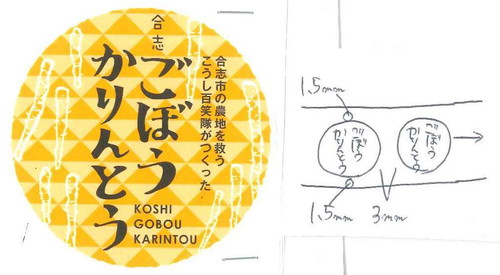 合志
ごぼう
かりんとう
合志市の農地を救う
こうし百笑隊がつくった
KOSHI
GOBOU
KARINTOU
1.5mm
ごぼう
かりんとう
ごぼう
かりんとう
1.5mm
3mm